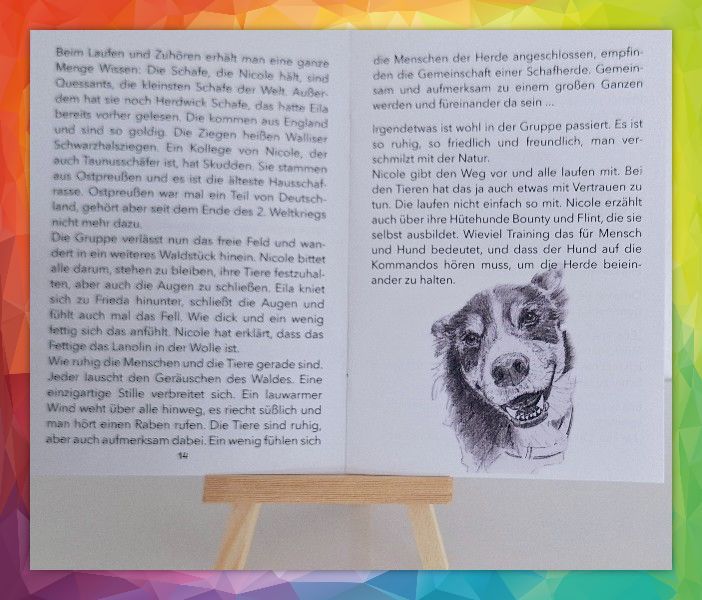 Beim Laufen und Zuhören erhält man eine ganze
Menge Wissen: Die Schafe, die Nicole hält, sind
Quessants, die kleinsten Schafe der Welt. Außer-
dem hat sie noch Herdwick Schafe, das hatte Eila
bereits vorher gelesen. Die kommen aus England
und sind so goldig. Die Ziegen heißen Walliser
Schwarzhalsziegen. Ein Kollege von Nicole, der
auch Taunusschäfer ist, hat Skudden. Sie stammen
aus Ostpreußen und es ist die älteste Hausschaf-
rasse. Ostpreußen war mal ein Teil von Deutsch-
land, gehört aber seit dem Ende des 2. Weltkriegs
nicht mehr dazu.
Die Gruppe verlässt nun das freie Feld und wan-
dert in ein weiteres Waldstück hinein. Nicole bittet
alle darum, stehen zu bleiben, ihre Tiere festzuhal-
ten, aber auch die Augen zu schließen. Eila kniet
sich zu Frieda hinunter, schließt die Augen und
fühlt auch mal das Fell. Wie dick und ein wenig
fettig sich das anfühlt. Nicole hat erklärt, dass das
Fettige das Lanolin in der Wolle ist.
Wie ruhig die Menschen und die Tiere gerade sind.
Jeder lauscht den Geräuschen des Waldes. Eine
einzigartige Stille verbreitet sich. Ein lauwarmer
Wind weht über alle hinweg, es riecht süßlich und
man hört einen Raben rufen. Die Tiere sind ruhig,
aber auch aufmerksam dabei. Ein wenig fühlen sich
14
die Menschen der Herde angeschlossen, empfin-
den die Gemeinschaft einer Schafherde. Gemein-
sam und aufmerksam zu einem großen Ganzen
werden und füreinander da sein ...
Irgendetwas ist wohl in der Gruppe passiert. Es ist
so ruhig, so friedlich und freundlich, man ver-
schmilzt mit der Natur.
Nicole gibt den Weg vor und alle laufen mit. Bei
den Tieren hat das ja auch etwas mit Vertrauen zu
tun. Die laufen nicht einfach so mit. Nicole erzählt
auch über ihre Hütehunde Bounty und Flint, die sie
selbst ausbildet. Wieviel Training das für Mensch
und Hund bedeutet, und dass der Hund auf die
Kommandos hören muss, um die Herde beiein-
ander zu halten.